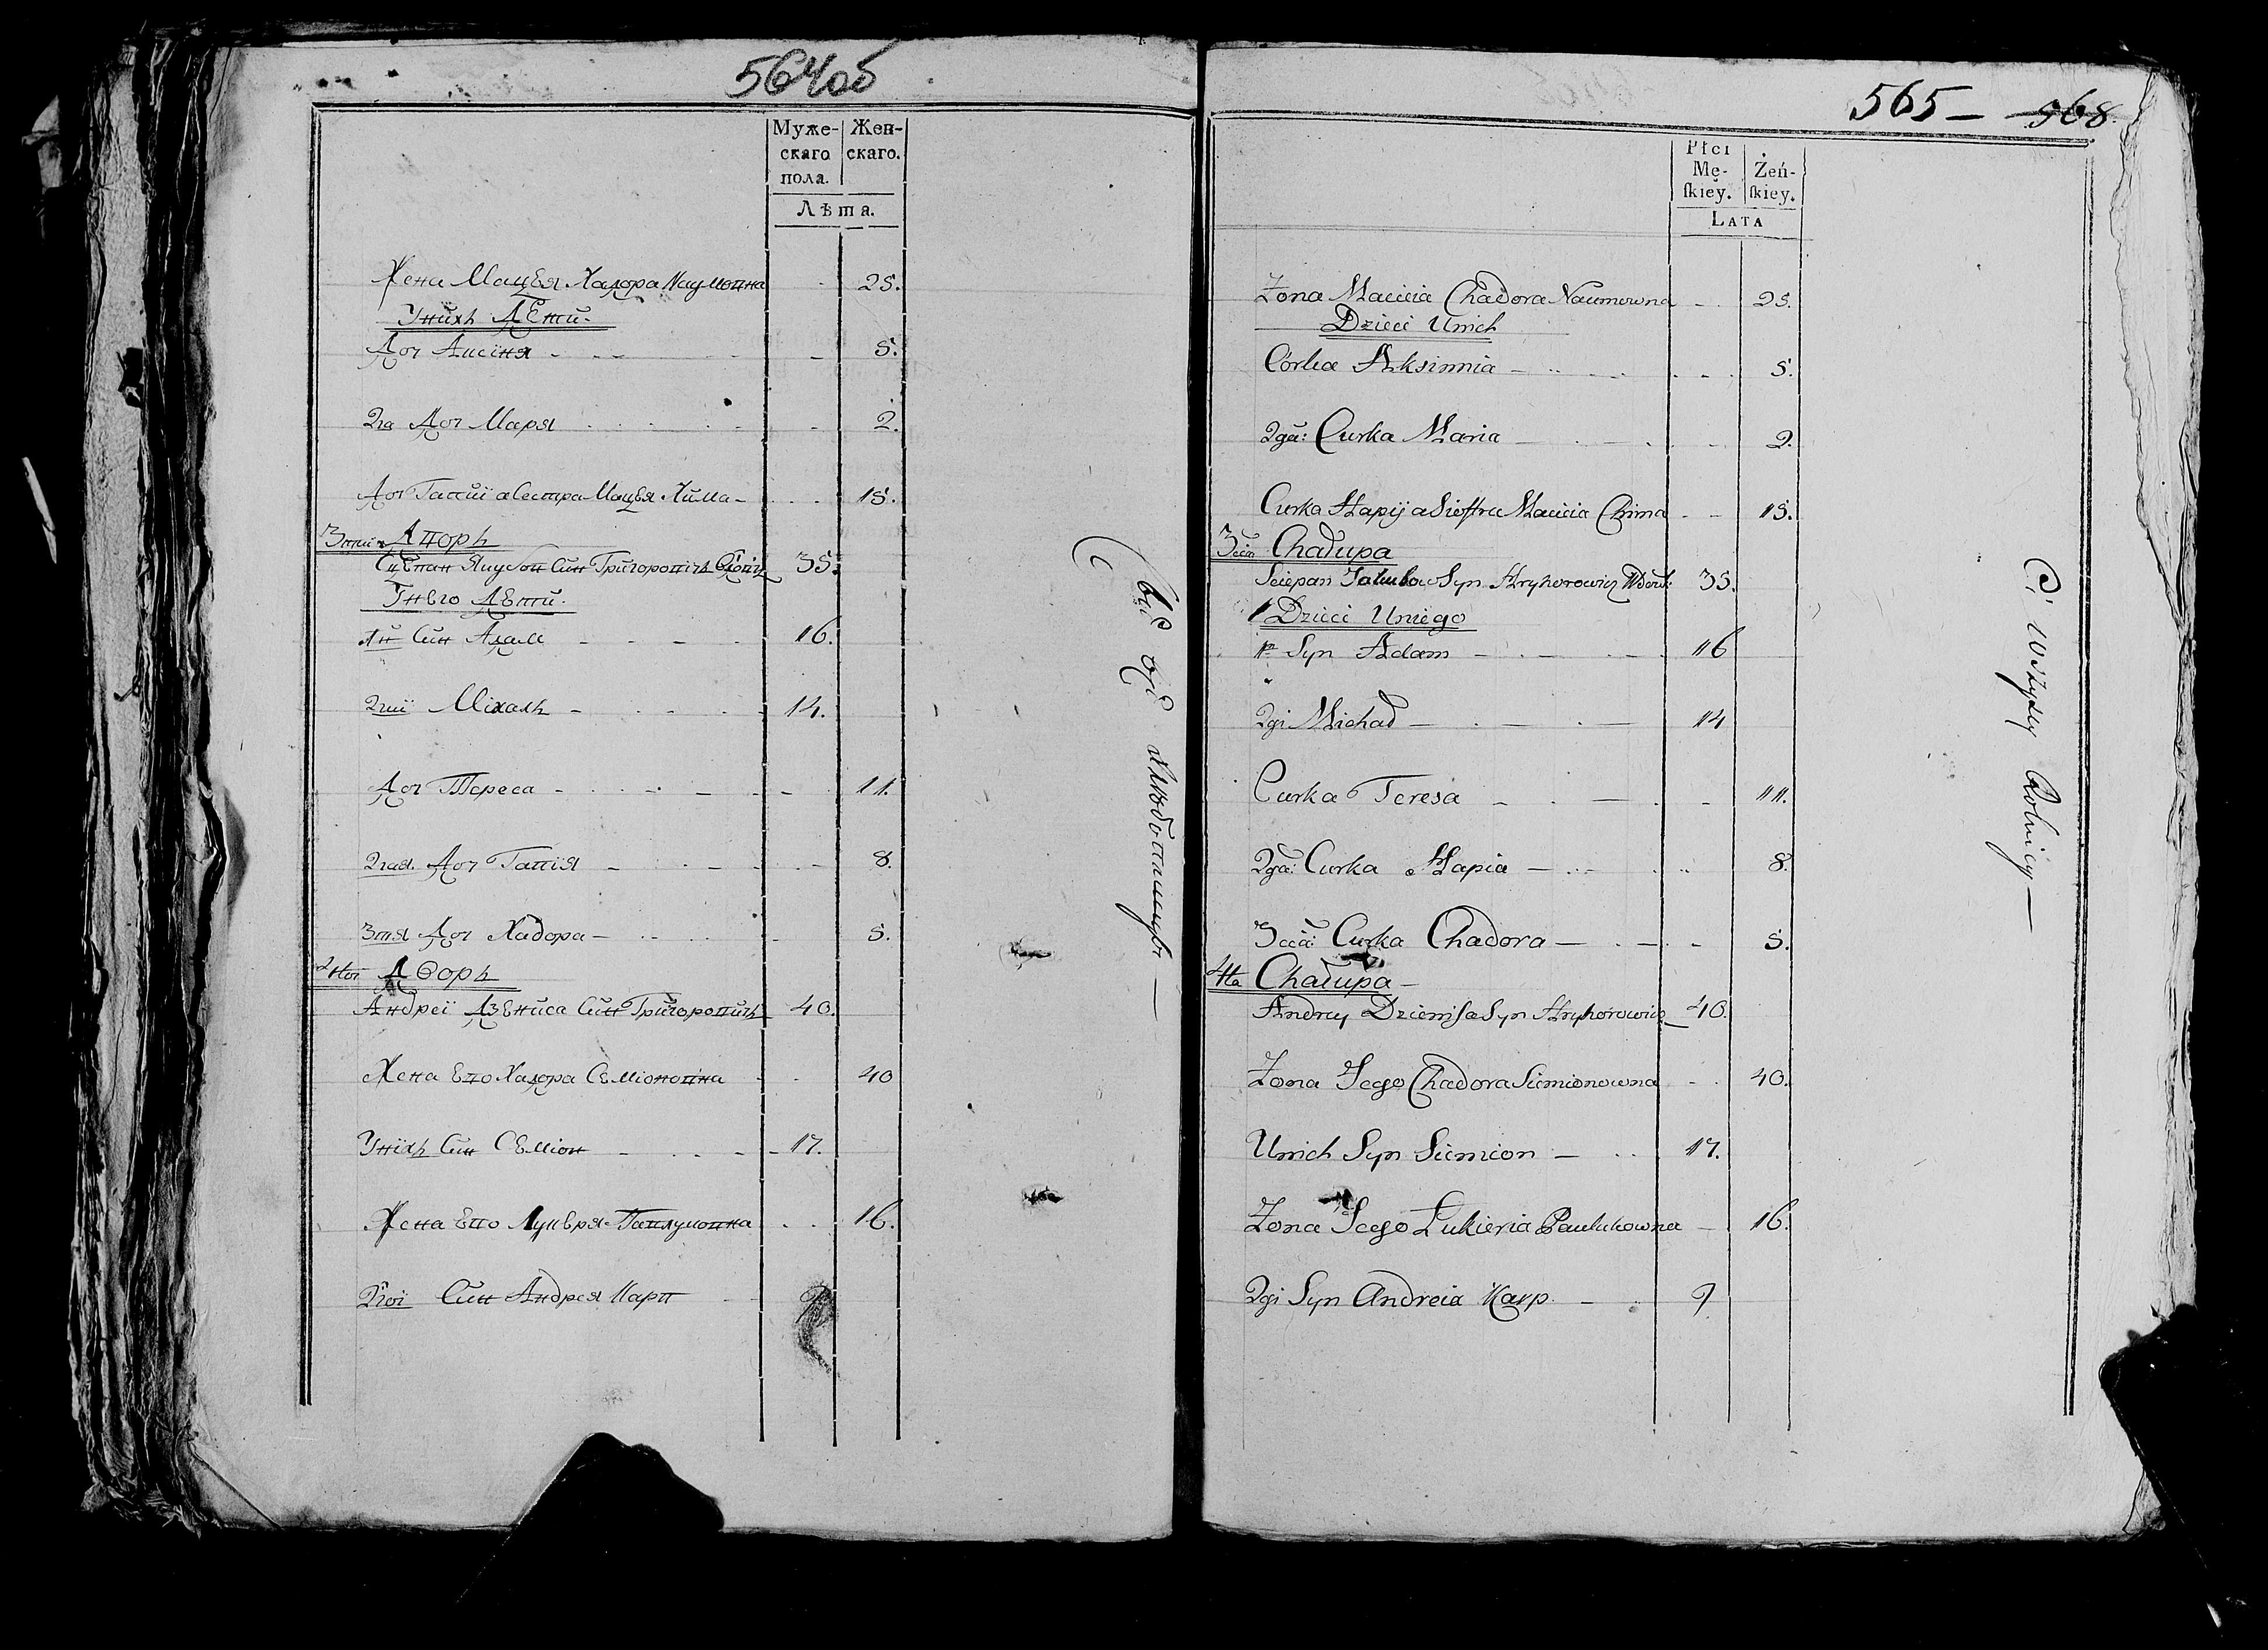 564об
Муже-
скаго
пола.
Жен-
скаго.
Лѣта.
Жена Мацѣя Хадора Наумовна 25.
Унихъ Дѣти.
Доч Аксіня 5.
2га Доч Маря 2.
Доч Гапіи а Сестра Мацѣя Хима 15.
Дворъ
Сцѣпан Якубов Син Григоровичъ 35.
Унѣго Дѣти.
1й Син Адам 16.
2гий Міхалъ 14.
Доч Тереса 11.
2гая Доч Гапія 8.
3тя Доч Хадора 5.
Дворъ
Андреі Дзѣниса Син Григоровичъ 40.
Жена Ево Хадора Сѣміоновна 40
Уніхъ Син Сѣміон 17.
Жена Ево Лукѣря 16.
2гоі Син Андрея Карп
565 - 568.
Płci
Mę-
ſkiey.
Żeń-
ſkiey.
LATA
Żona Macieia Chadora Naumowna 25.
Dzieci Unich
Córka Aksimnia 5.
2ga: Curka Maria 2.
Curka Hapij a Siostra Macieia Chima 15.
3cia Chałupa
Sciepan Jakuba Syn Hryhorowicz Wdow: 35.
Dzieci Uniego
1n Syn Adam 16
2gi Michał 14
Curka Teresa 11.
2ga: Curka Hapia 8.
3cia: Curka Chadora 5.
4ta Chałupa
Andrey Dzienisa Syn Hryhorowicz 40.
Żona Jego Chadora Siemionowna 40.
Unich Syn Siemion 17.
Żona Jego Łukieria Paulukowna 16.
2gi Syn Andreia Karp 9
Ci wszyscy Rolnicy